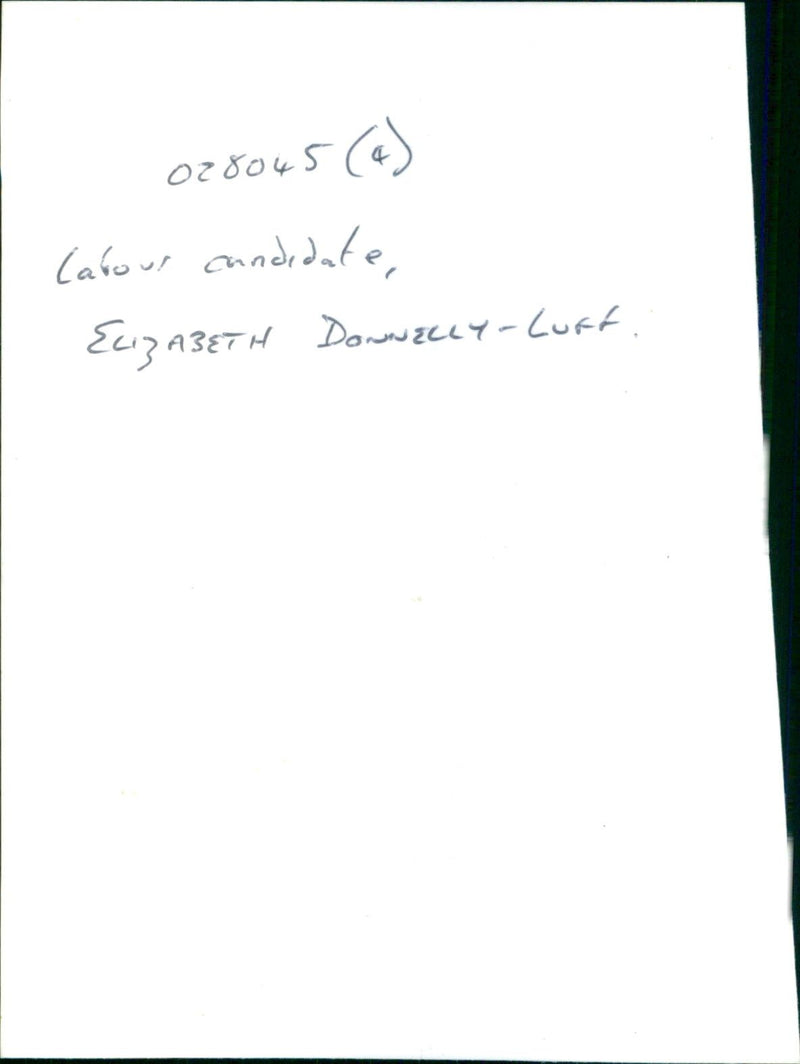 028045 (4)
Labour candidate,
ELIZABETH DONNELLY-LUFF.